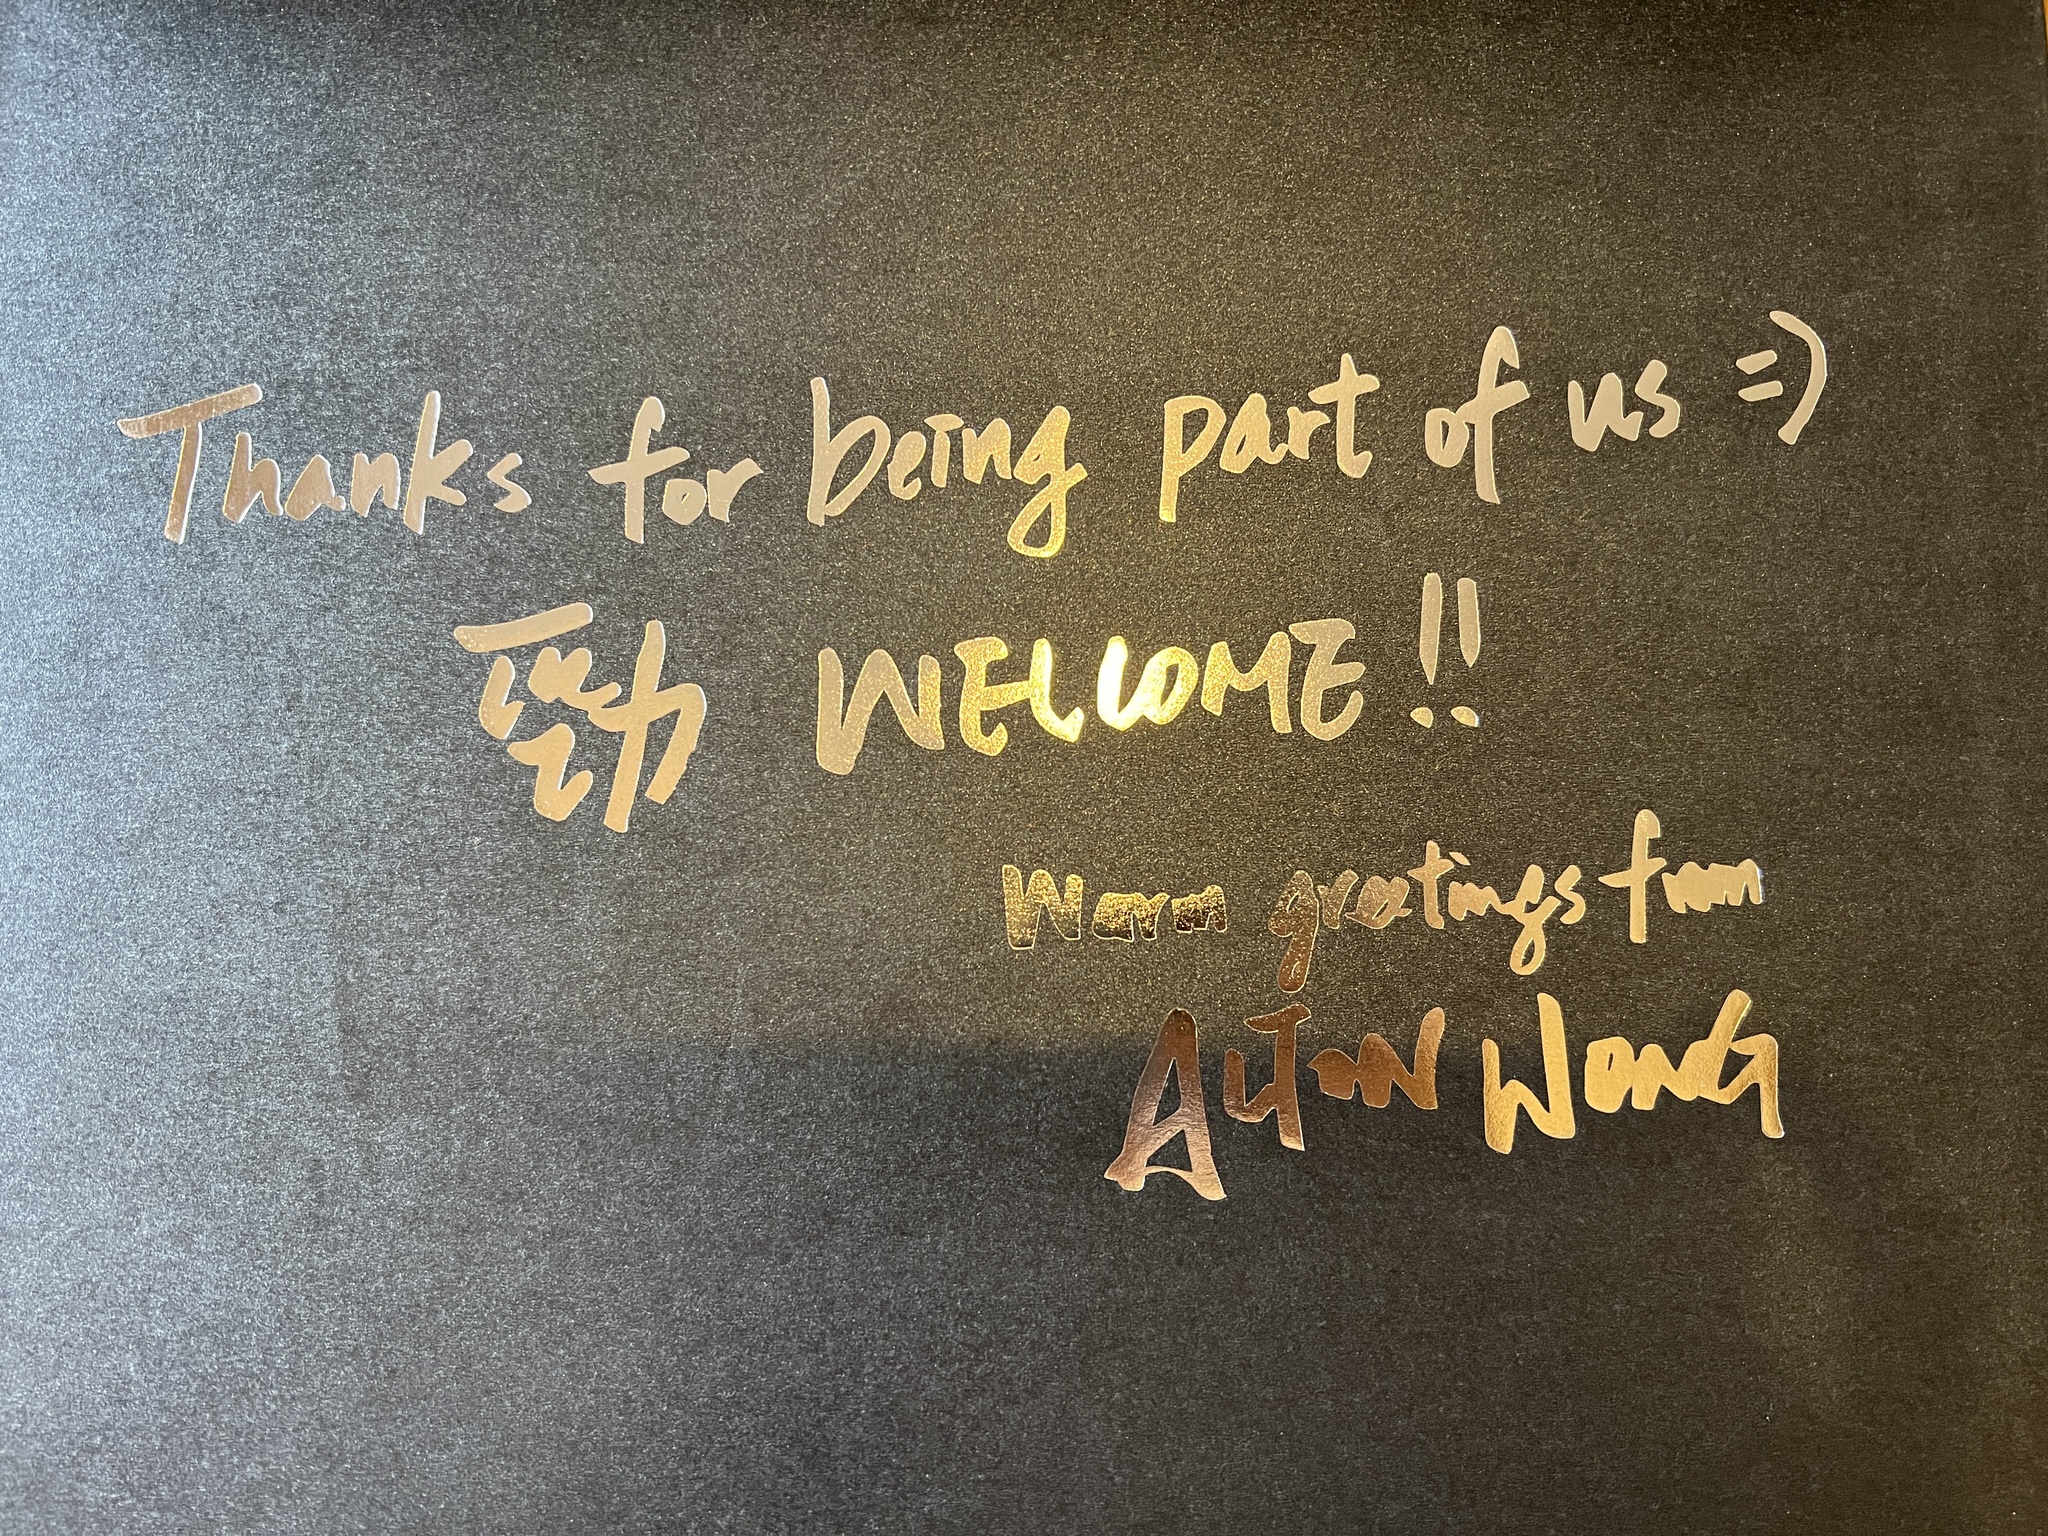 Thanks for being part of us =)
勁 WELCOME!!
Warm greetings from
ALTON WONG